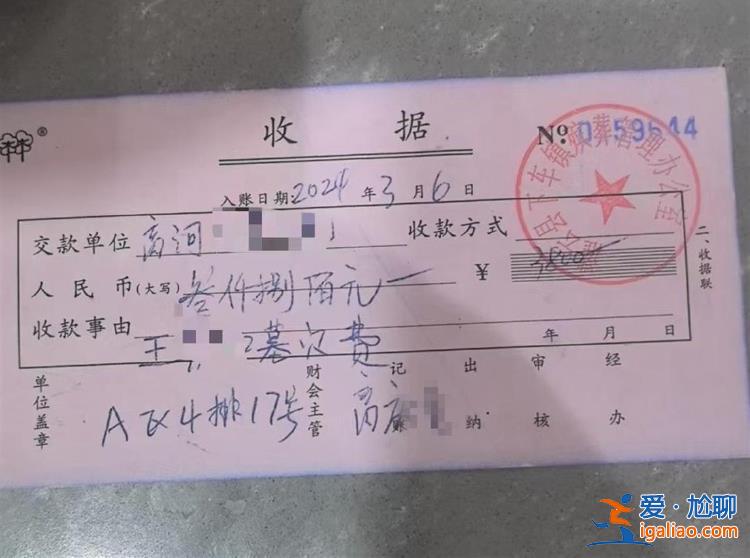 祥®
收据 № 0159544
入账日期2024年3月6日
交款单位 高河 收款方式
人民币(大写) 叁仟捌佰元 ¥ 3800
收款事由 王 墓穴费 年月日
二、收据联
单位盖章 财会主管 记账 出纳 审核 经办
A区4排17号
县下车镇殡葬管理办公室
爱·尴聊
igaliao.com